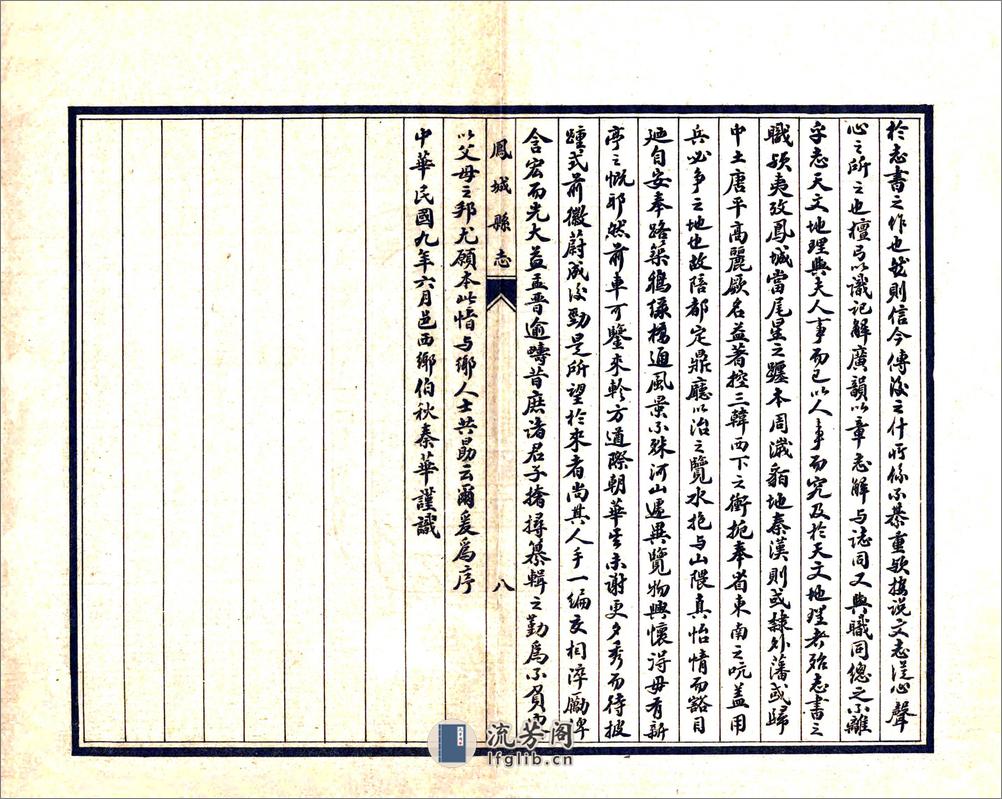 於志書之作也然則信今傳後之什所係不綦重歟按說文志從心聲
心之所之也檀弓以識記解廣韻以章志解与誌同又與職同總之不離
乎志天文地理與夫人事而已以人事而究及於天文地理者殆志書之
職歟夷攷鳳城當尾星之躔本周濊貊地秦漢則或隸外藩或歸
中土唐平高麗厥名益著控三韓西下之衝扼奉省東南之吭蓋用
兵必爭之地也故陪都定鼎廳以治之覽水抱与山隈真怡情而豁目
迺自安奉路築鴨綠橋通風景不殊河山遽異覽物興懷得毋有新
亭之慨耶然前車可鑒來軫方遒際朝華之未謝更夕秀而待披
踵式前徽蔚成後勁是所望於來者尚其人手一編交相淬勵俾
含宏而光大益孟晉逾疇昔庶諸君子搘撏纂輯之勤為不負
鳳城縣志
八
以父母之邦尤願本此愔与鄉人士共勗云爾爰為序
中華民國九年六月邑西鄉伯秋秦華謹識
流芳阁
lfglib.cn